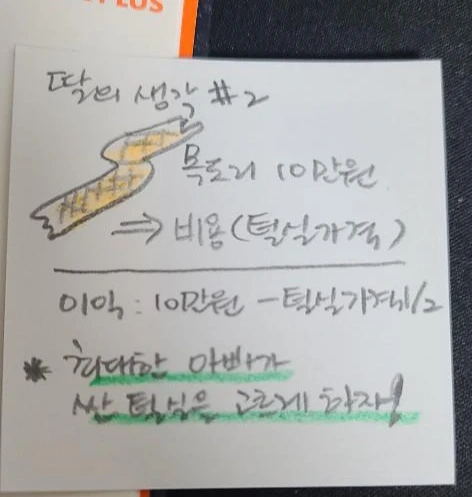 PLUS
딸의 생각 #2
목도리 10만원
⇒ 비용(털실가격)
이익 : 10만원 - 털실가격/2
* 최대한 아빠가
싼 털실을 고르게 하자!